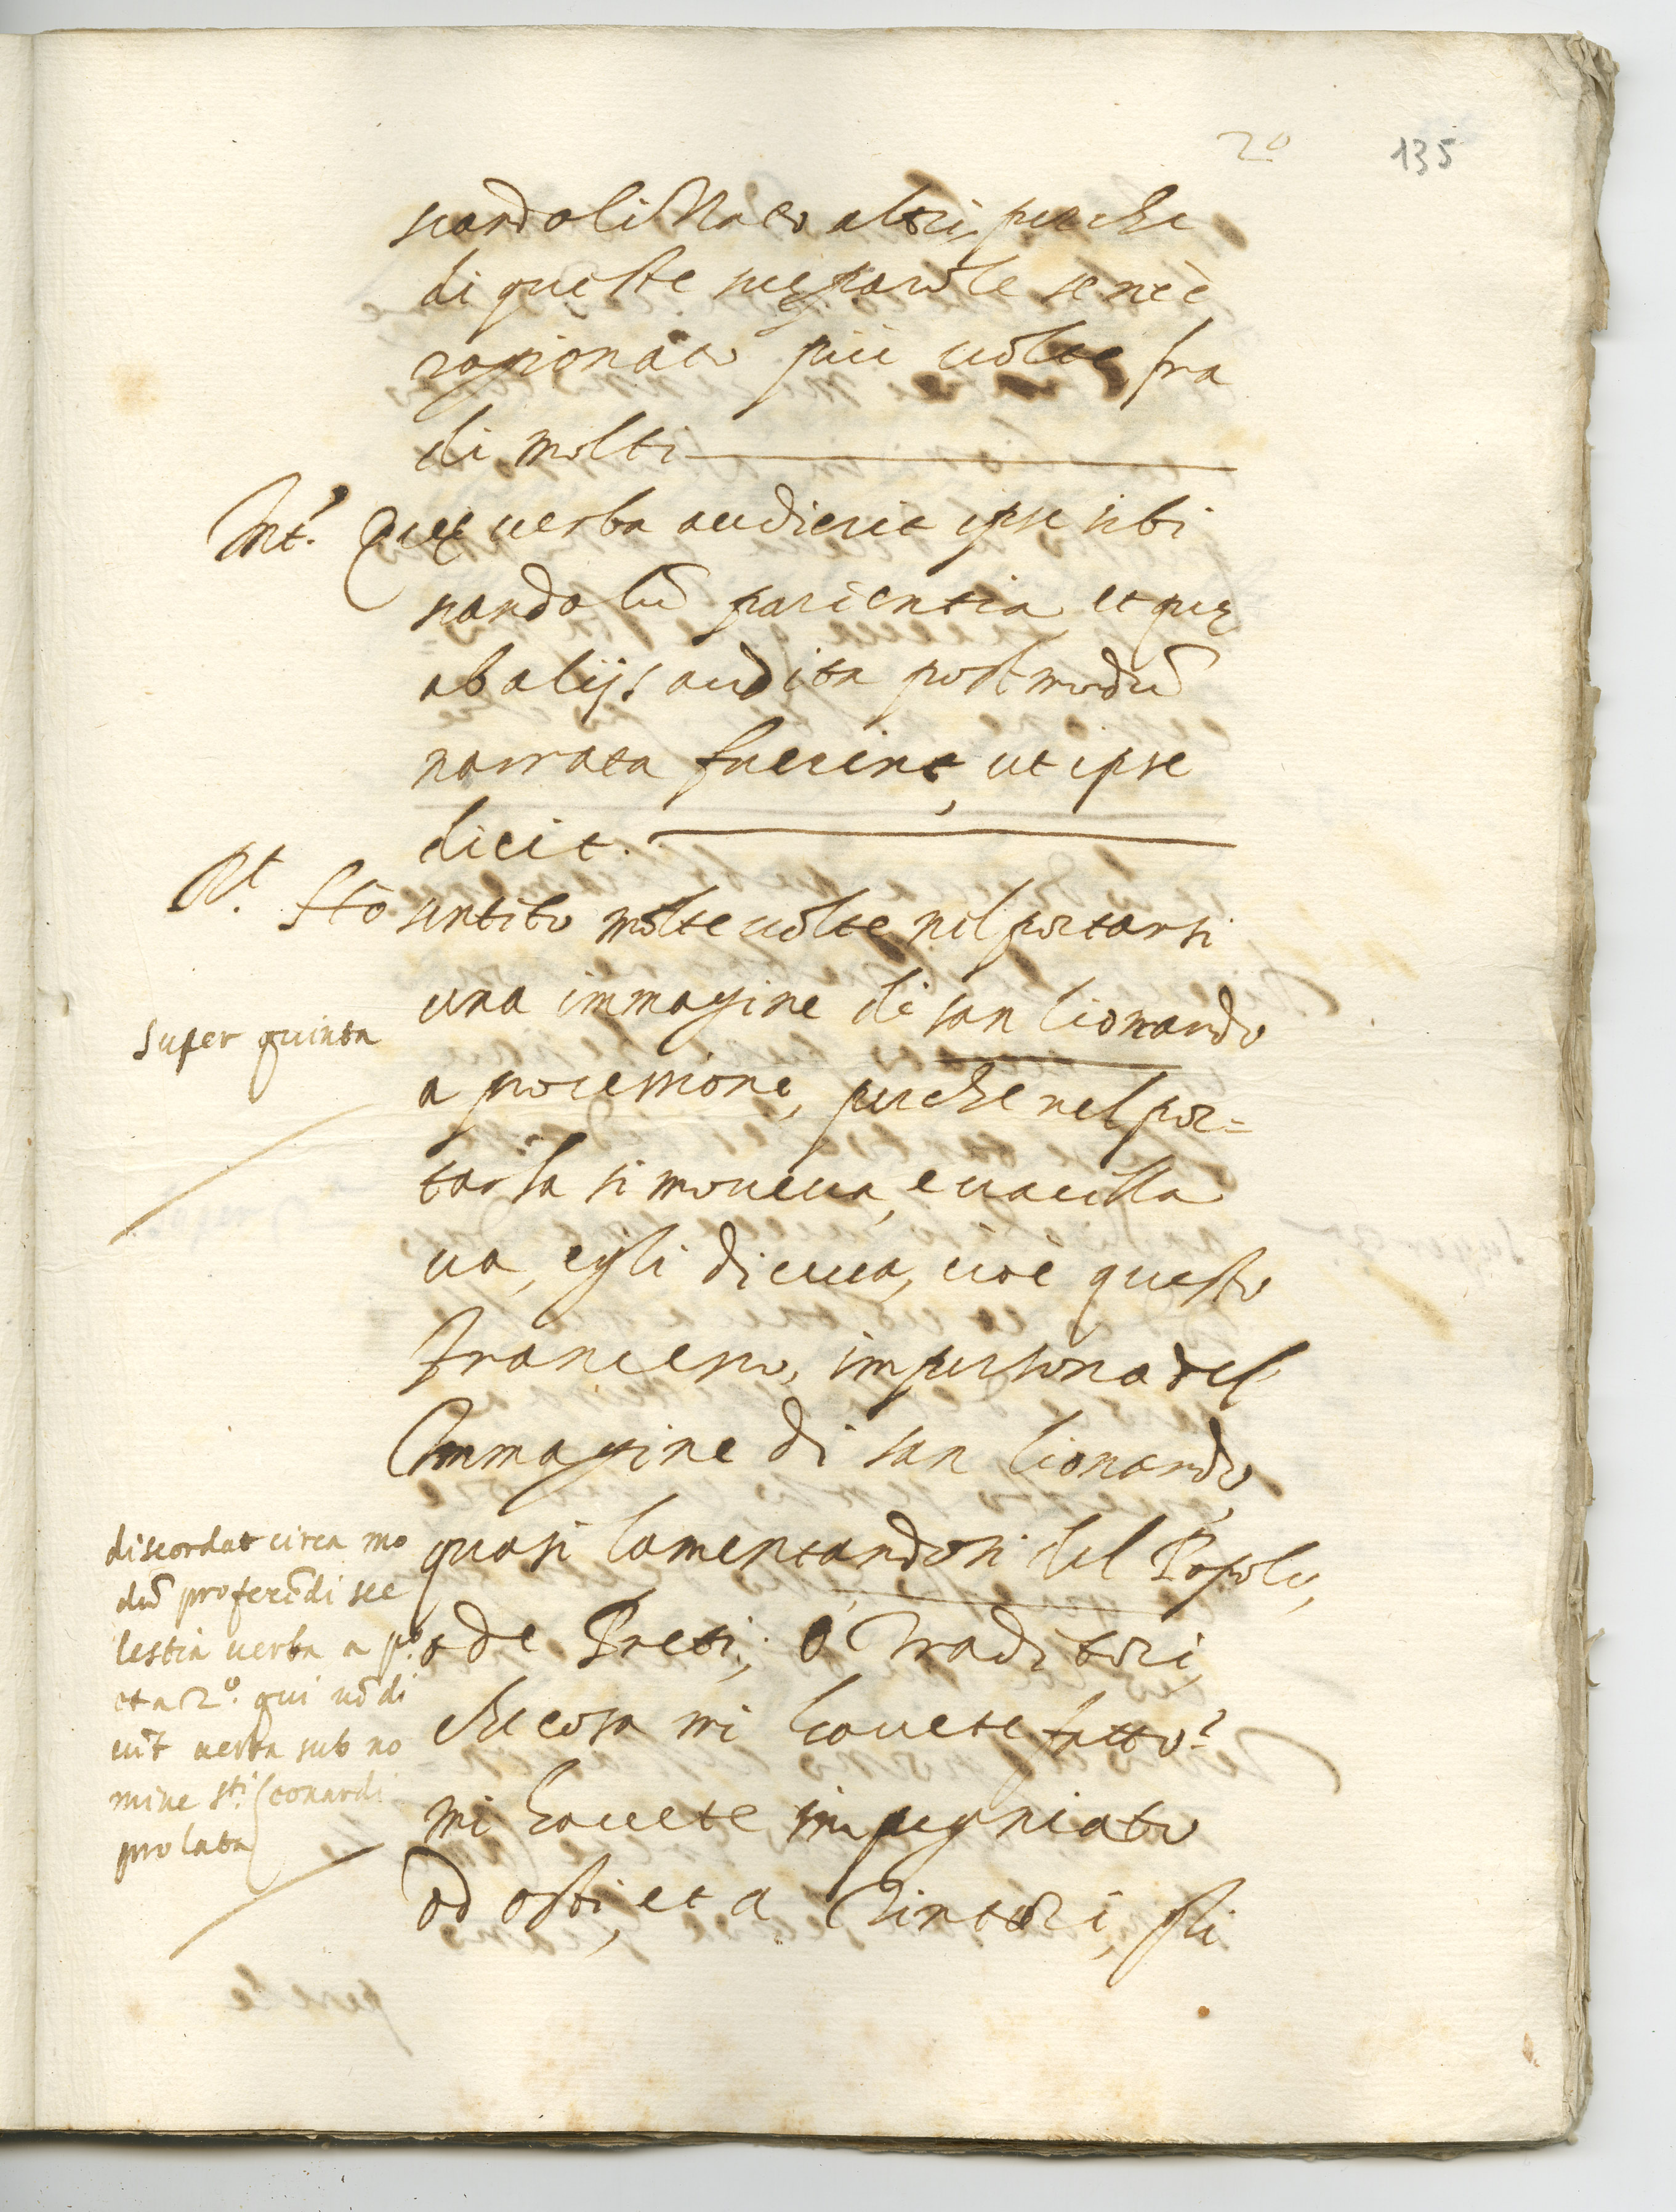 20 135
scandalizato altri, perche
di queste sue parole se n'è
ragionato più uolte, fra
di molti
Int.° Quę uerba audierit ipse sibi
scandalū parientia et quę
ab alijs audita postmodū
narrata fuerint, ut ipse
dicit.
Rt. Hò sentito molte uolte nel portarsi
una immagine di san lionardo
super quinta
a processione, perche nel por=
tarla si moueua, e uacilla
ua, egli diceua, cioè questo
Francesco, in persona del
Immagine di san lionardo,
quasi lamentandosi del Popolo,
o de Preti; ò Traditori,
che cosa mi hauete fatto?
mi hauete impegniato
ad osti, et a Tintori, gli
discordat circa mo
dū proferēdi sce
lestia uerba a p.°
et a 2.° qui nō di
cūt uerba sub no
mine S.ti Leonardi
prolata